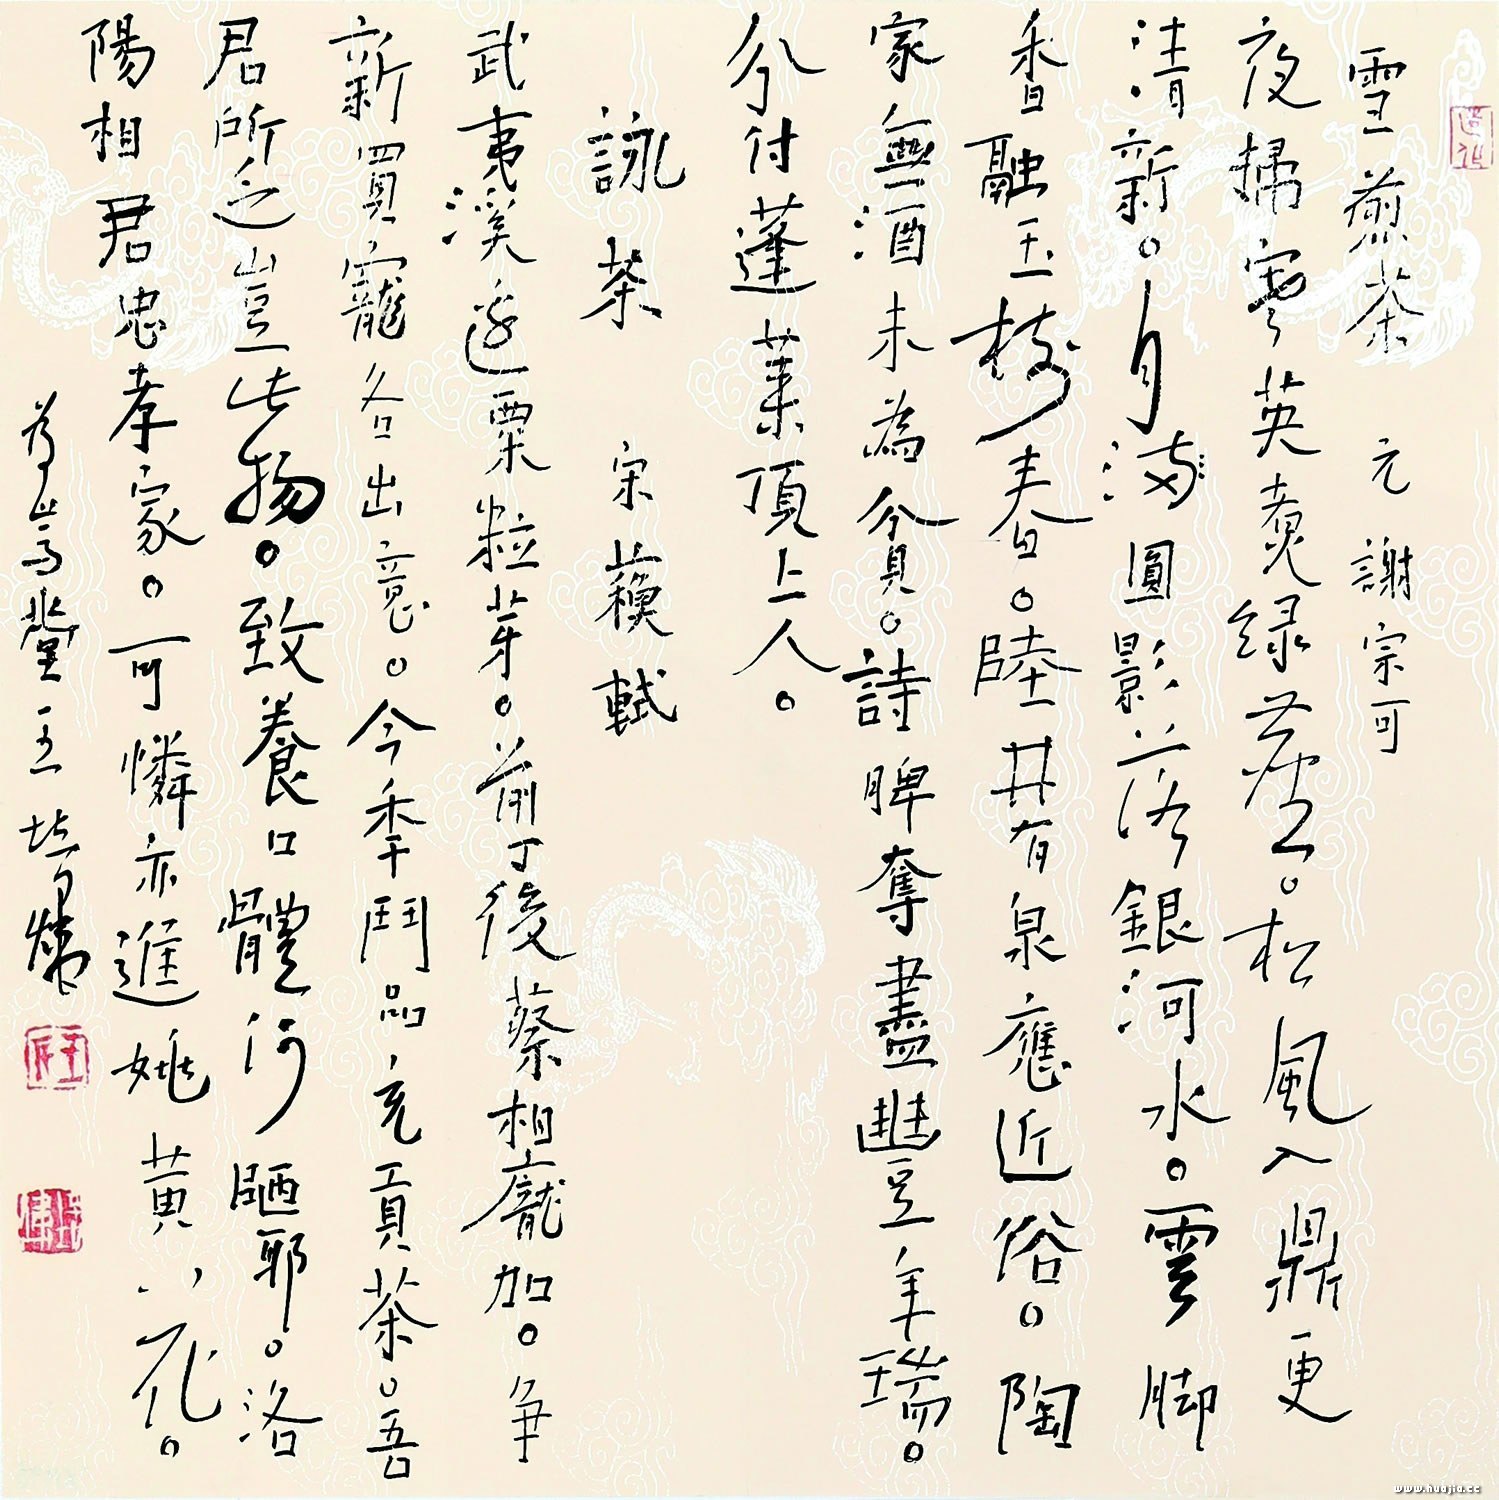 雪煎茶 元 謝宗可
夜掃寒英煮绿塵。松風入鼎更
清新。月滿圓影落銀河水。雲脚
香融玉樹春。陸井有泉應近俗。陶
家無酒未為貧。詩脾奪盡豐年瑞。
分付蓬萊頂上人。
詠茶 宋 蘇軾
武夷溪邊粟粒芽。前丁後蔡相龐加。争
新買寵各出意。今年鬥品充貢茶。吾
君所乏豈此物。致養口體何陋耶。洛
陽相君忠孝家。可憐亦進姚黄花。
www.huajia.cc